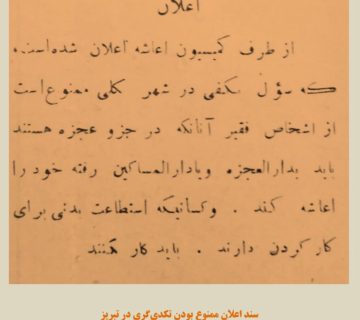 اعلان
از طرف کمیسیون اعاشه اعلان شده است
که سؤال بکفی در شهر کلی ممنوع است
از اشخاص فقیر آنانکه در جزو عجزه هستند
باید بدارالعجزه ویادارالمساکین رفته خود را
اعاشه کند . وکسانیکه استطاعت بدنی برای
کار کردن دارند . باید کار کنند
سند اعلان ممنوع بودن تکدی‌گری در تبریز